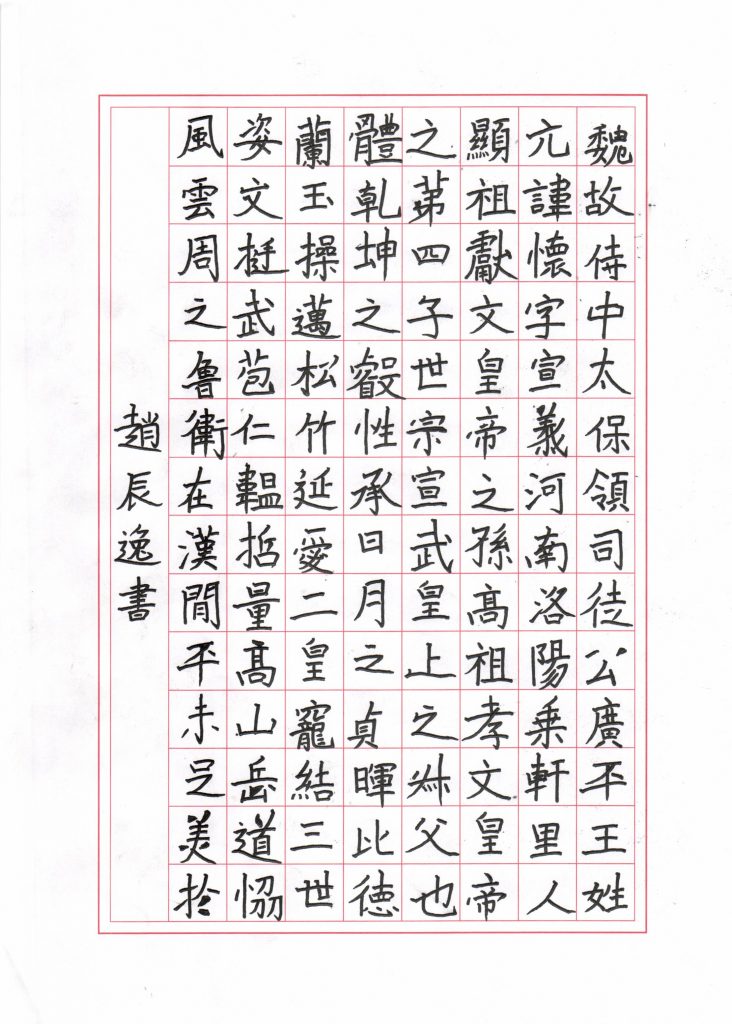 魏故侍中太保領司徒公廣平王姓
元諱懷字宣義河南洛陽乗軒里人
顯祖獻文皇帝之孫高祖孝文皇帝
之苐四子世宗宣武皇上之叔父也
體乾坤之叡性承日月之貞暉比德
蘭玉操邁松竹延愛二皇寵結三世
姿文挺武苞仁韞哲量高山岳道恊
風雲周之魯衛在漢閒平未足美於
趙辰逸書